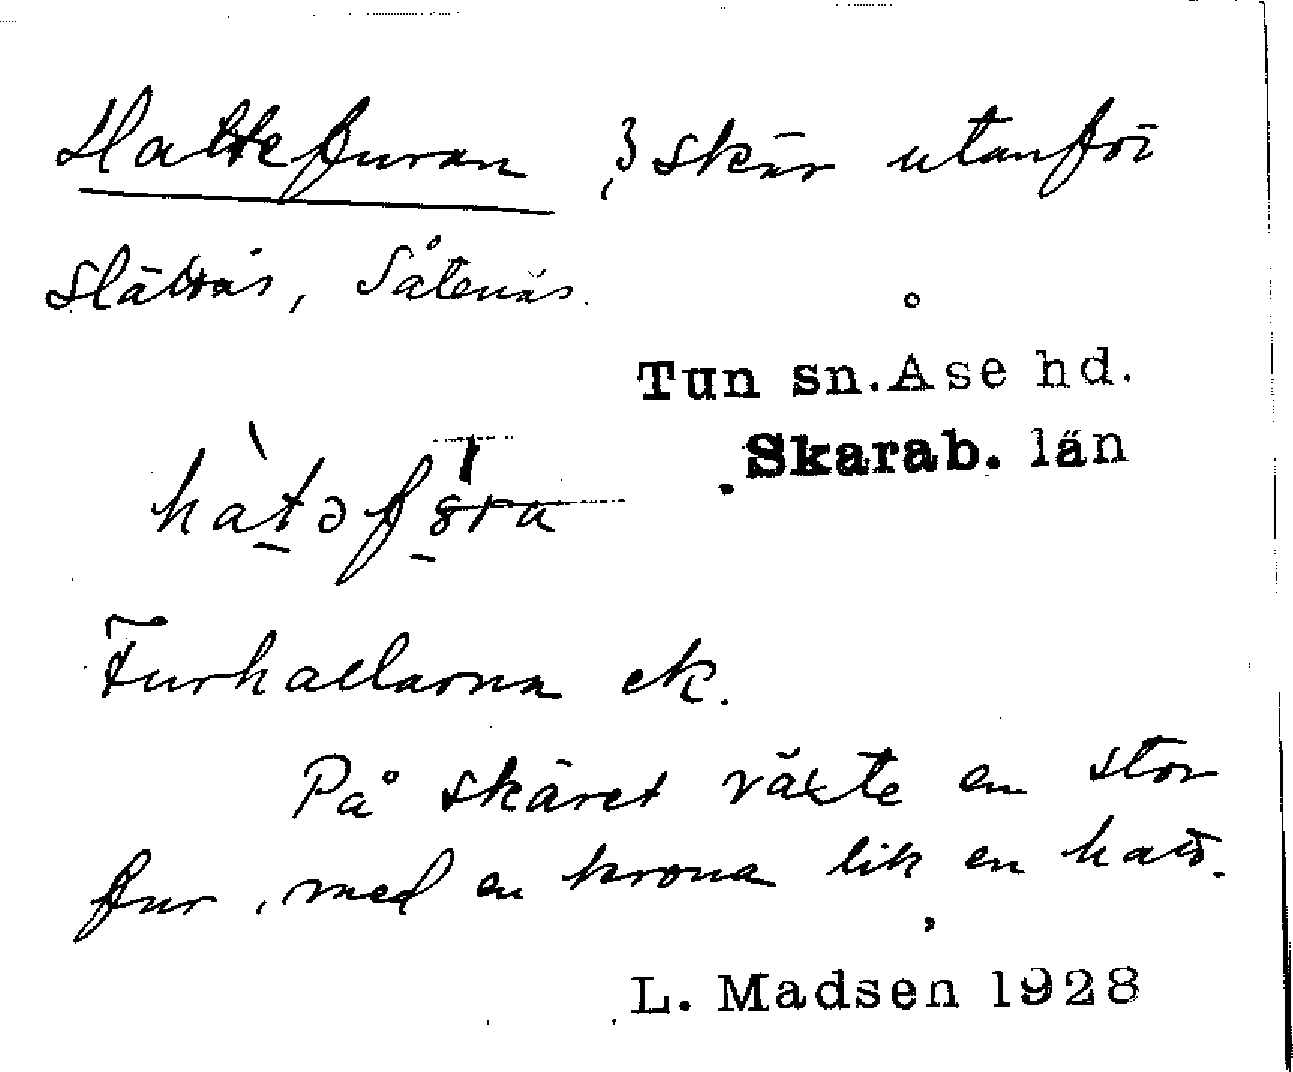 Hattefuran, 3 skär utanför
Slättnäs, Såtenäs.
Tun sn. Åse hd.
Skarab. län
hàtəfära
Furhallarna ek.
På skäret växte en stor
fur, med en krona lik en hatt.
L. Madsen 1928